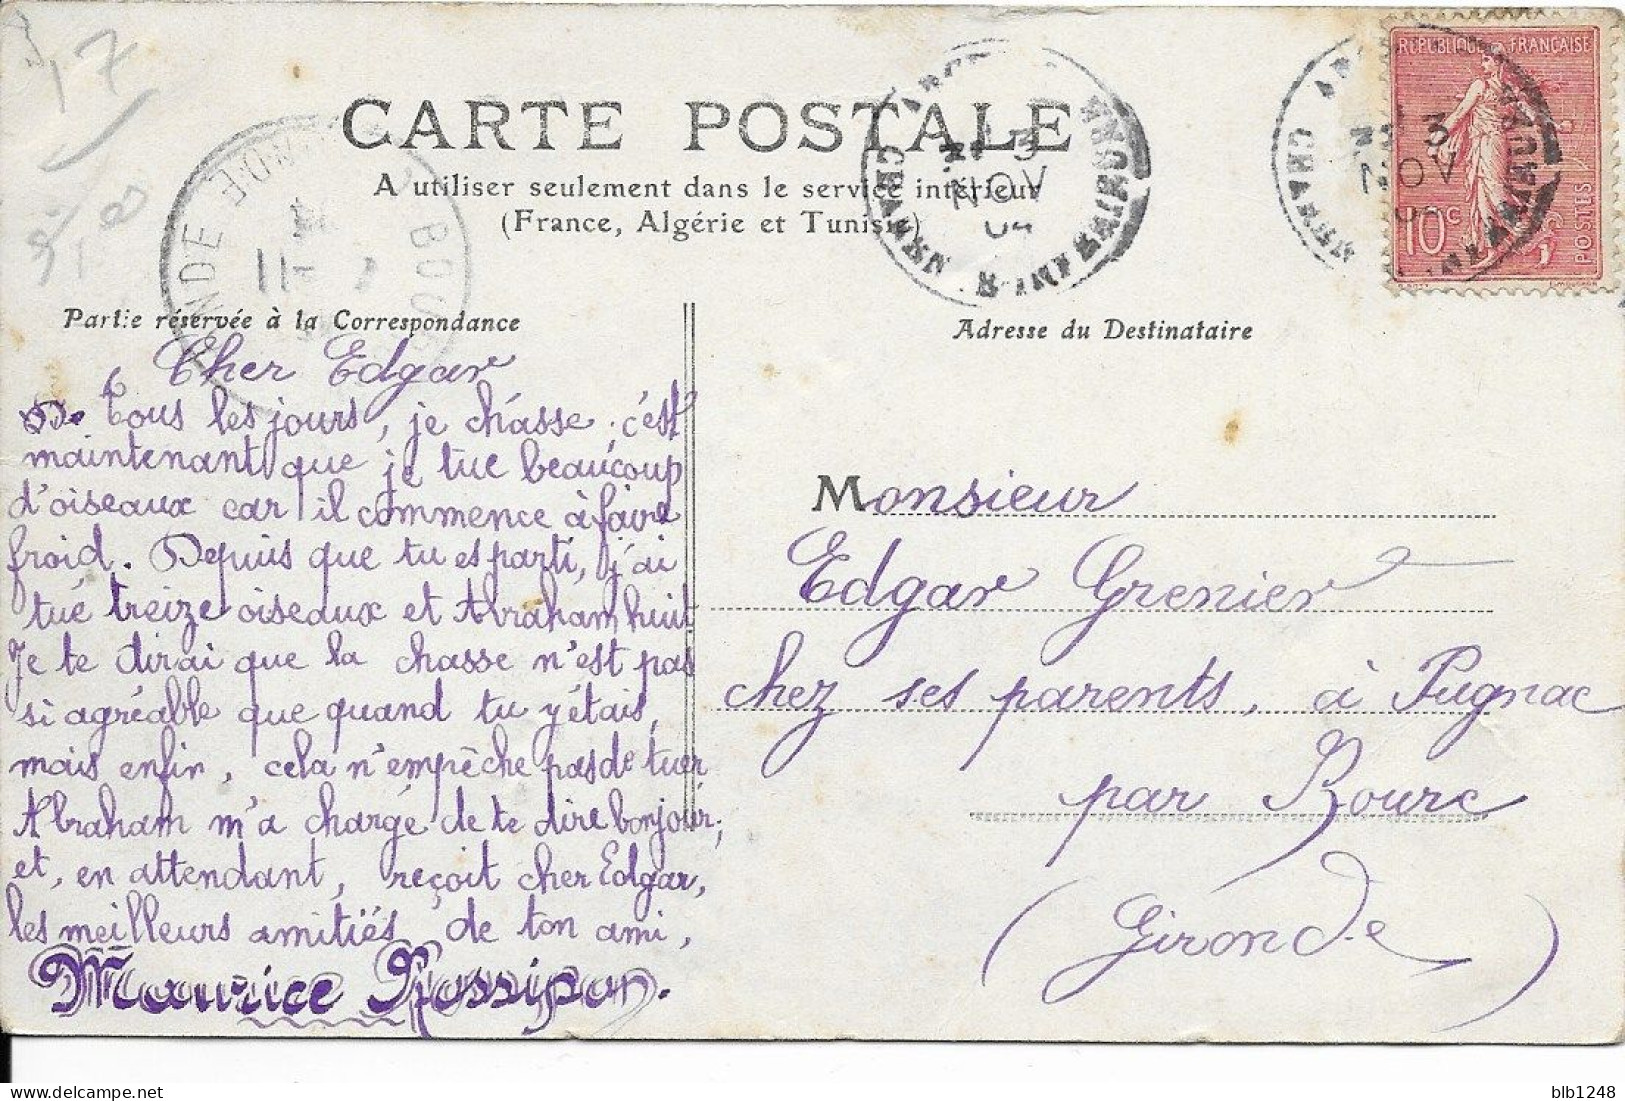 CARTE POSTALE
A utiliser seulement dans le service intérieur
(France, Algérie et Tunisie)
Partie réservée à la Correspondance
Cher Edgar
Tous les jours, je chasse. c'est
maintenant que je tue beaucoup
d'oiseaux car il commence à faire
froid. Depuis que tu es parti, j'ai
tué treize oiseaux et Abraham huit
Je te dirai que la chasse n'est pas
si agréable que quand tu y étais,
mais enfin, cela n'empêche pas de tuer
Abraham m'a chargé de te dire bonjour;
et, en attendant, reçoit cher Edgar,
les meilleurs amitiés de ton ami,
Maurice Rossipon.
Adresse du Destinataire
Monsieur
Edgar Grenier
chez ses parents, à Pugnac
par Bourg
(Gironde)
REPUBLIQUE FRANÇAISE
10c
POSTES
3
NOV
04
3
NOV
17
blb1248